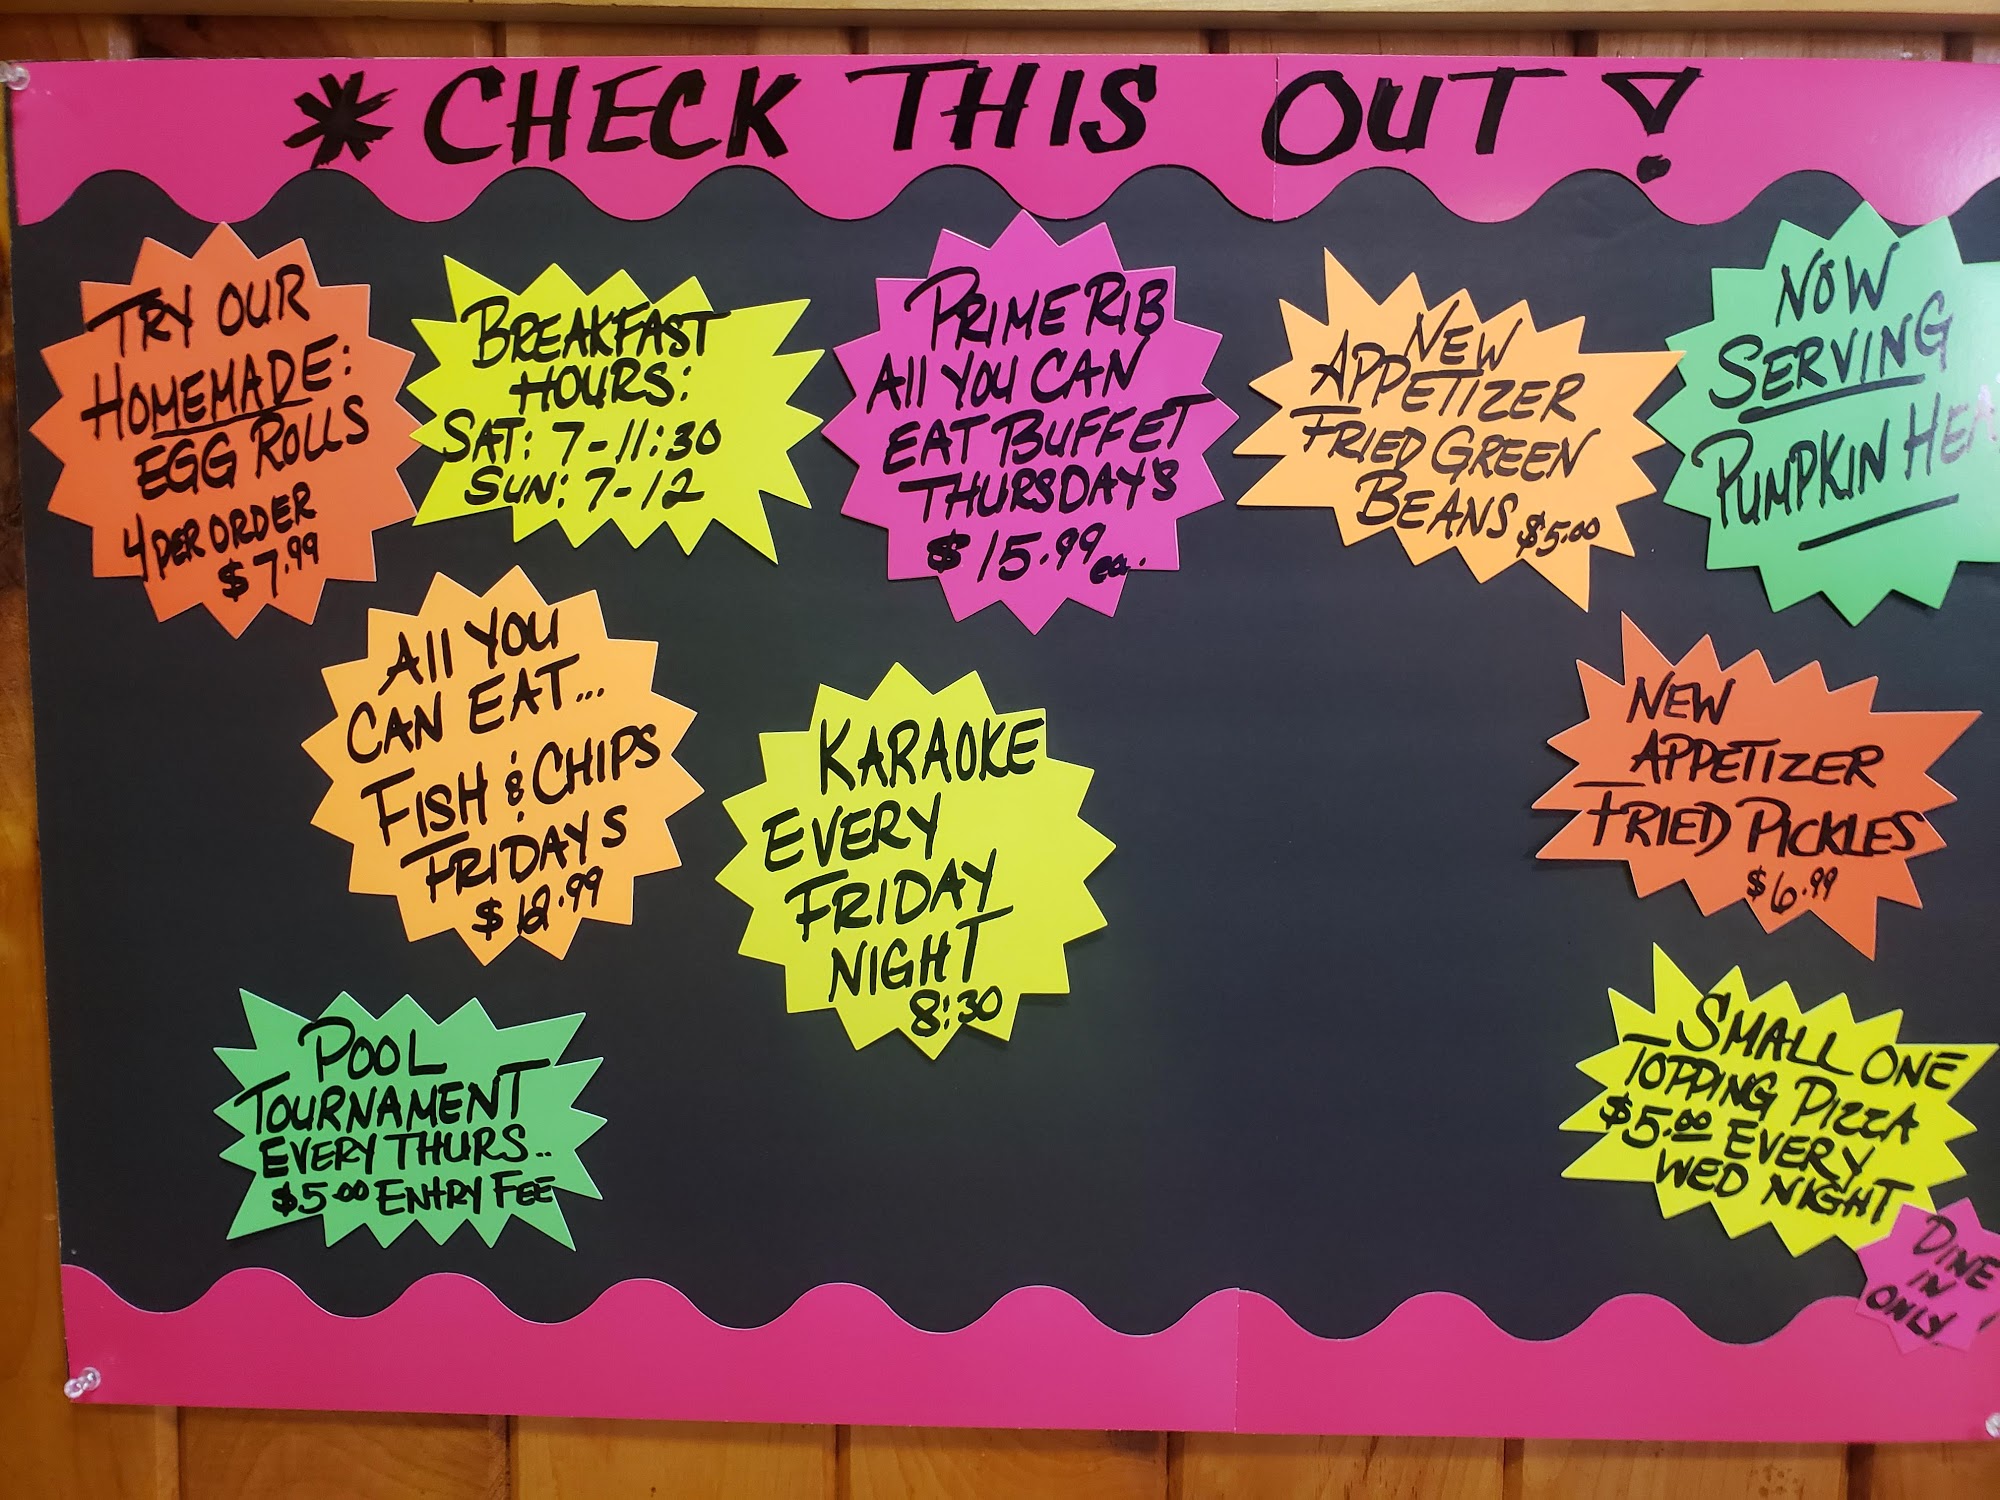 * CHECK THIS OUT!
TRY OUR
HOMEMADE:
EGG ROLLS
4 PER ORDER
$7.99
BREAKFAST
HOURS:
SAT: 7-11:30
SUN: 7-12
PRIME RIB
All YOU CAN
EAT BUFFET
THURSDAY'S
$15.99 ea.
NEW
APPETIZER
FRIED GREEN
BEANS $5.00
NOW
SERVING
PUMPKIN HEA
All YOU
CAN EAT...
FISH & CHIPS
FRIDAYS
$12.99
KARAOKE
EVERY
FRIDAY
NIGHT
8:30
NEW
APPETIZER
FRIED PICKLES
$6.99
POOL
TOURNAMENT
EVERY THURS..
$5.00 ENTRY FEE
SMALL ONE
TOPPING PIZZA
$5.00 EVERY
WED NIGHT
DINE
IN
ONLY!